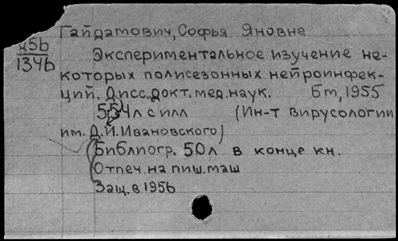 Гайдамович, Софья Яновна
Х5б
1346
Экспериментальное изучение не-
которых полисезонных нейроинфек-
ций. Дисс. докт. мед. наук. Бт, 1955
554л с илл (Ин-т Вирусологии
им. Д.И. Ивановского)
Библиогр. 50л. в конце кн.
Отпеч. на пиш. маш
Защ. в 1956